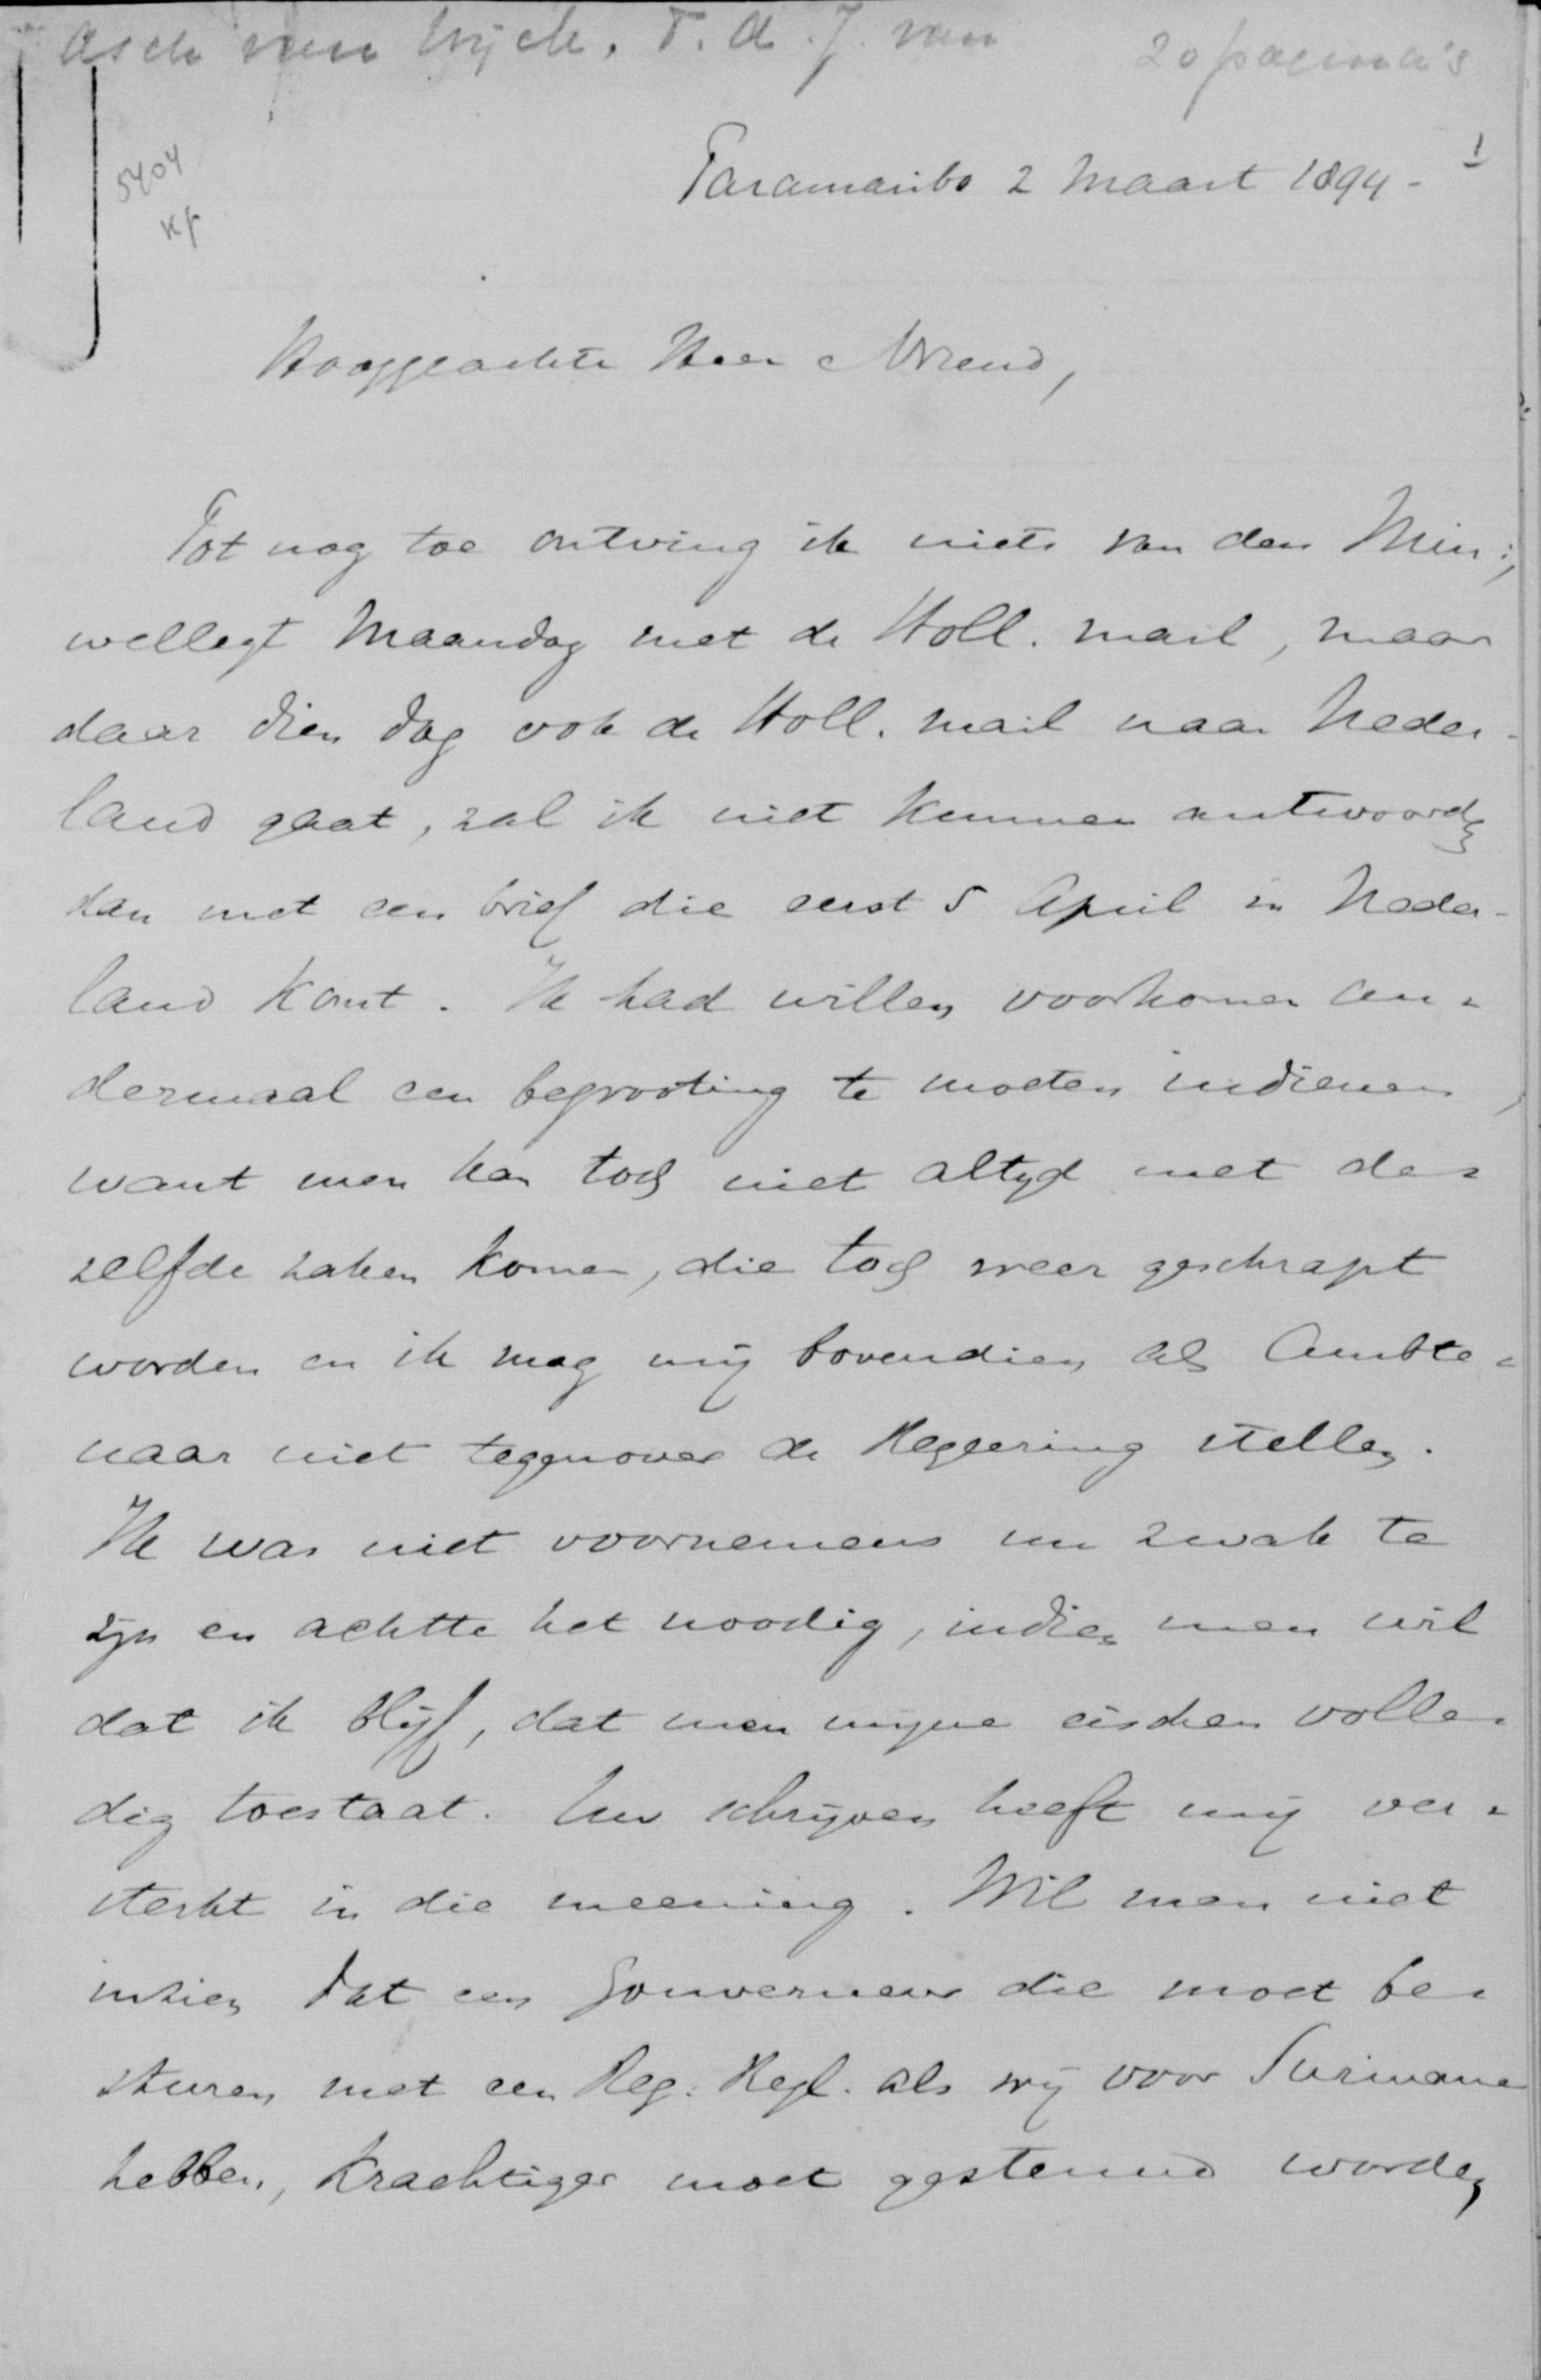 Asch van Wijck. T. A. J. van
20 pagina's
5404
Kp
Paramaribo 2 Maart 1894 -
1
Hooggeachte Heer & Vriend,
Tot nog toe ontving ik niets van den Min:,
wellegt Maandag met de Holl. mail, maar
daar dien dag ook de Holl. mail naar Neder-
land gaat, zal ik niet kunnen antwoorden
dan met een brief die eerst 5 April in Neder-
land komt. Ik had willen voorkomen an-
dermaal een begrooting te moeten indienen,
want men kan toch niet altyd met de-
zelfde zaken komen, die toch weer geschrapt
worden en ik mag mij bovendien als Ambte-
naar niet tegenover de Regeering stellen.
Ik was niet voornemens nu zwak te
zijn en achtte het noodig, indien men wil
dat ik blijf, dat men mijne eischen volle-
dig toestaat. Uw schrijven heeft mij ver-
sterkt in die meening. Wil men niet
inzien dat een Gouverneur die moet be-
sturen met een Reg: Regl. als wij voor Suriname
hebben, krachtiger moet gesteund worden